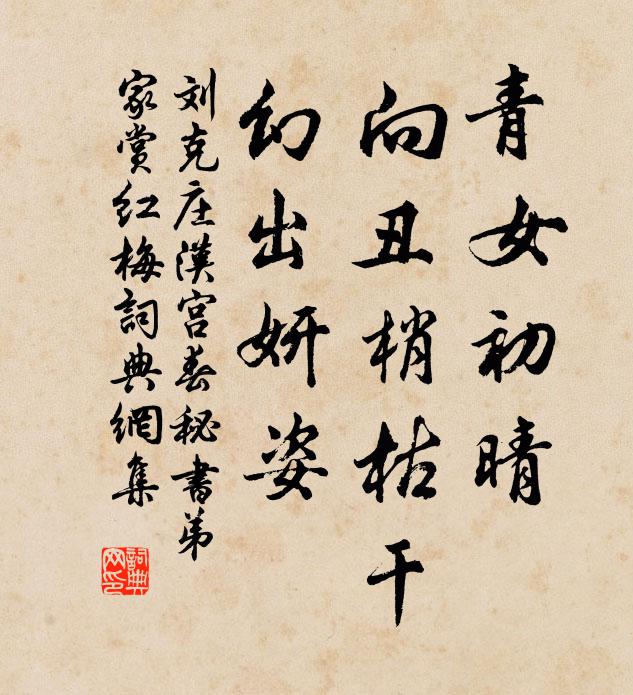 青女初晴
向丑梢枯干
幻出妍姿
刘克庄漢宫春秘書弟
家赏红梅詞典網集
詞典网印